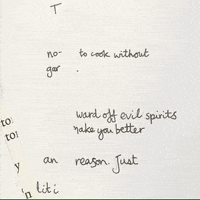 T
no- to cook without
gar .
ward off evil spirits
to:
make you better
to:
y an reason. Just
'n liti